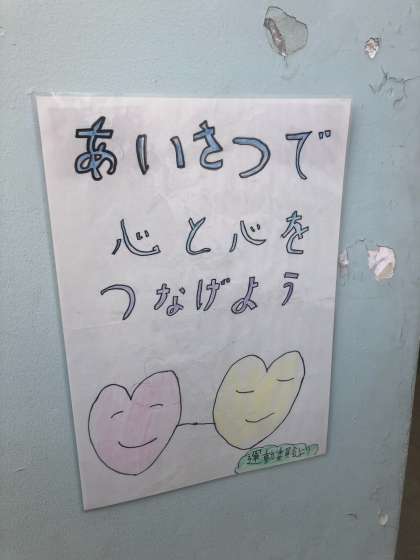 あいさつで
心と心を
つなげよう
運動委員会より